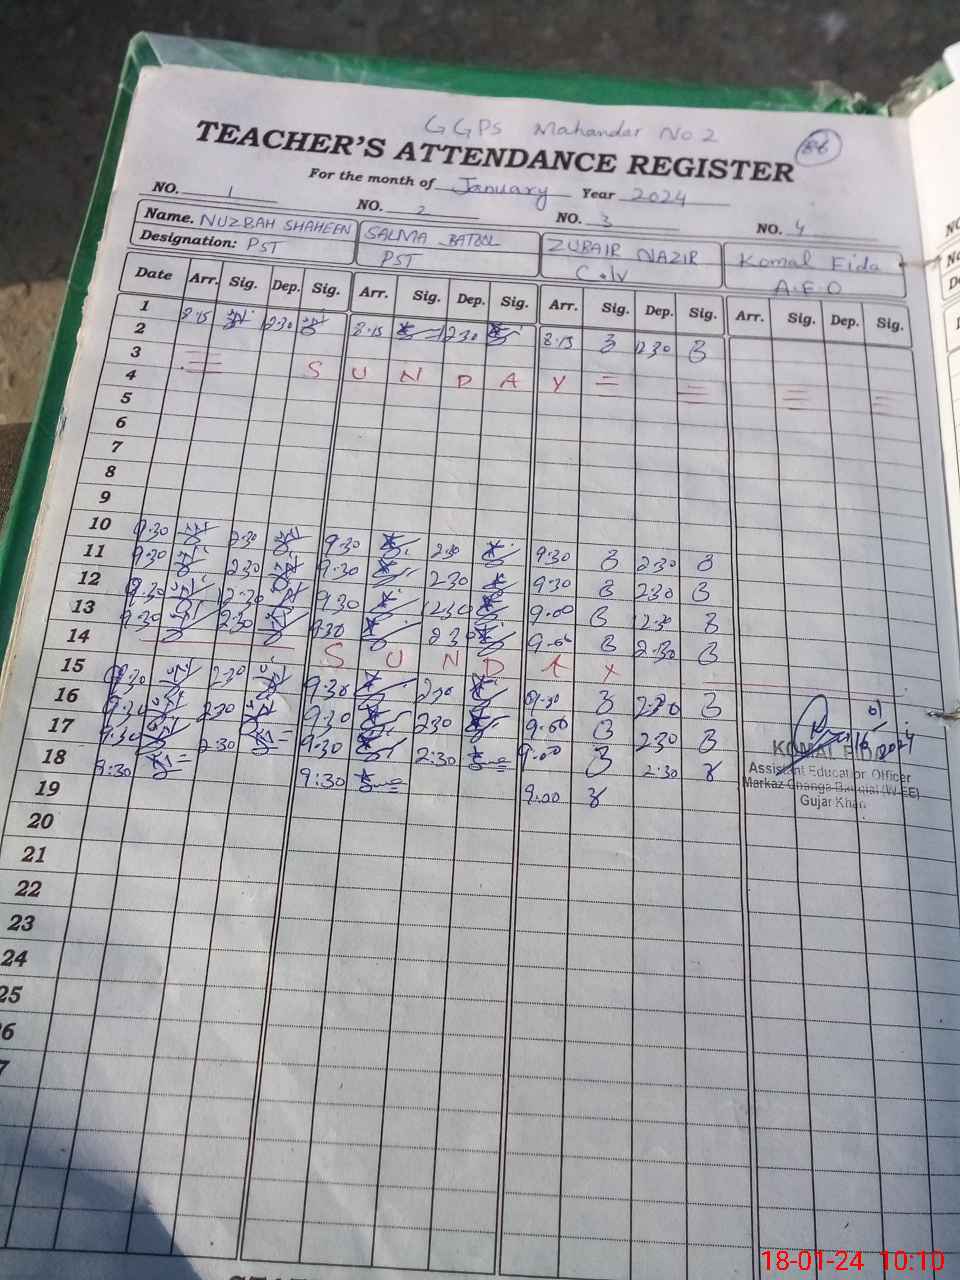 GGPS Mahandar No 2
86
TEACHER'S ATTENDANCE REGISTER
For the month of January Year 2024
NO. 1 NO. 2 NO. 3 NO. 4
Name. NUZBAH SHAHEEN SALMA BATOOL ZUBAIR NAZIR Komal Fida
Designation: PST PST C.IV A.E.O
Date Arr. Sig. Dep. Sig. Arr. Sig. Dep. Sig. Arr. Sig. Dep. Sig. Arr. Sig. Dep. Sig.
1
2 8.15 12.30 8.15 12.30 8.15 12.30
3
4 SUNDAY
5
6
7
8
9
10
11 9.30 2.30 9.30 2.30 9.30 2.30
12 9.30 2.30 9.30 2.30 9.30 2.30
13 9.30 12.30 9.30 12.30 9.00 12.30
14 9.30 2.30 9.30 2.30 9.00 2.30
15 SUNDAY
16 9.30 2.30 9.30 2.30 9.30 2.30
17 9.30 2.30 9.30 2.30 9.00 2.30
18 9.30 2.30 9.30 2:30 9.00 2.30
19 9:30 9:30 9.00
KOMAL FIDA
Assistant Education Officer
Markaz Changa Bangial (W-EE)
Gujar Khan
20
21
22
23
24
25
18-01-24 10:10